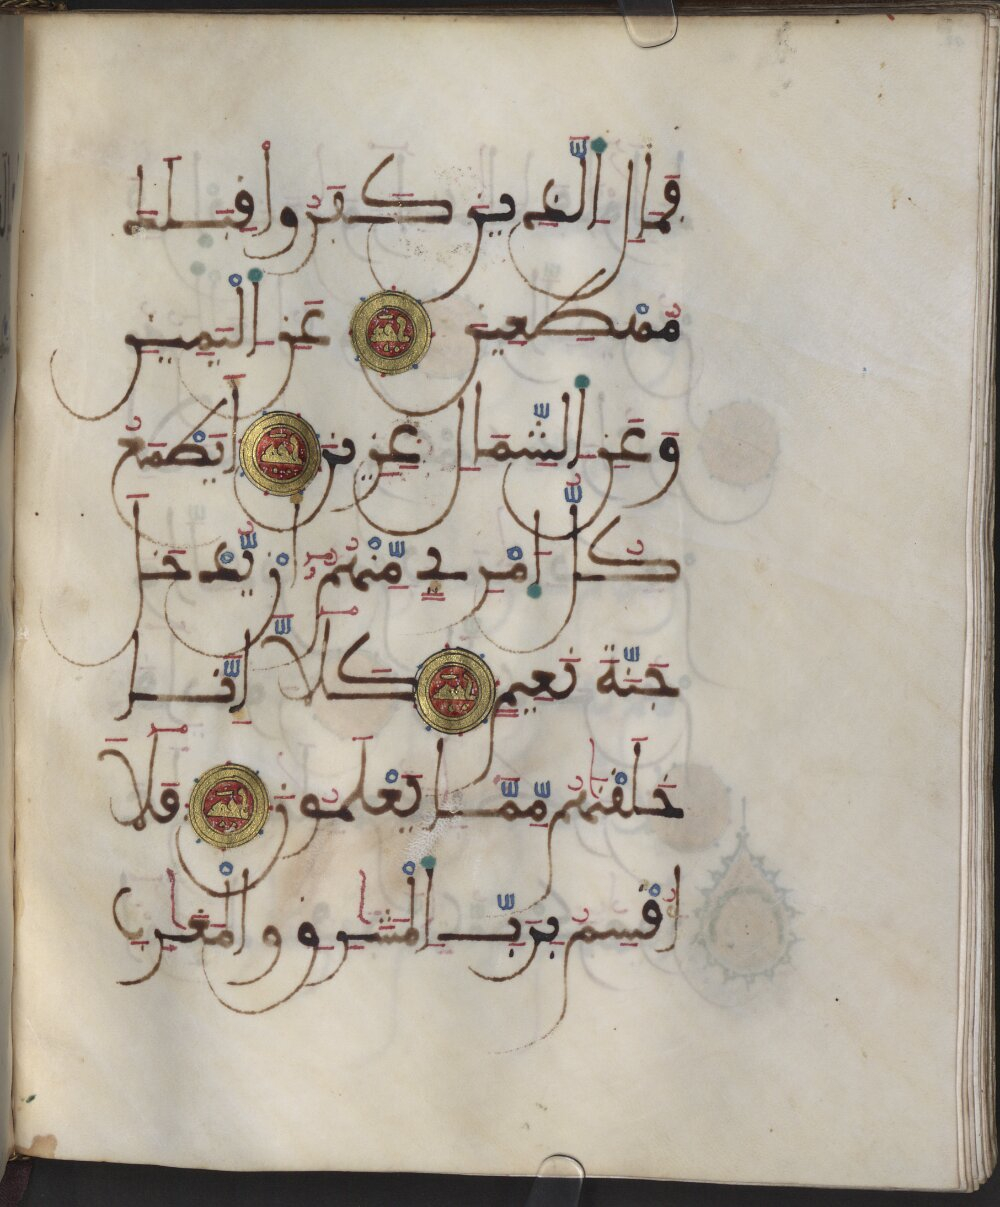 فَمَالِ ٱلَّذِينَ كَفَرُوا قِبَلَكَ
مُهْطِعِينَ عَنِ ٱلْيَمِينِ
وَعَنِ ٱلشِّمَالِ عِزِينَ أَيَطْمَعُ
كُلُّ ٱمْرِئٍ مِّنْهُمُ أَنْ يُّدْخَلَ
جَنَّةَ نَعِيمٍ كَلَّا إِنَّا
خَلَقْنَٰهُم مِّمَّا يَعْلَمُونَ فَلَا
أُقْسِمُ بِرَبِّ ٱلْمَشَٰرِقِ وَٱلْمَغَٰرِبِ